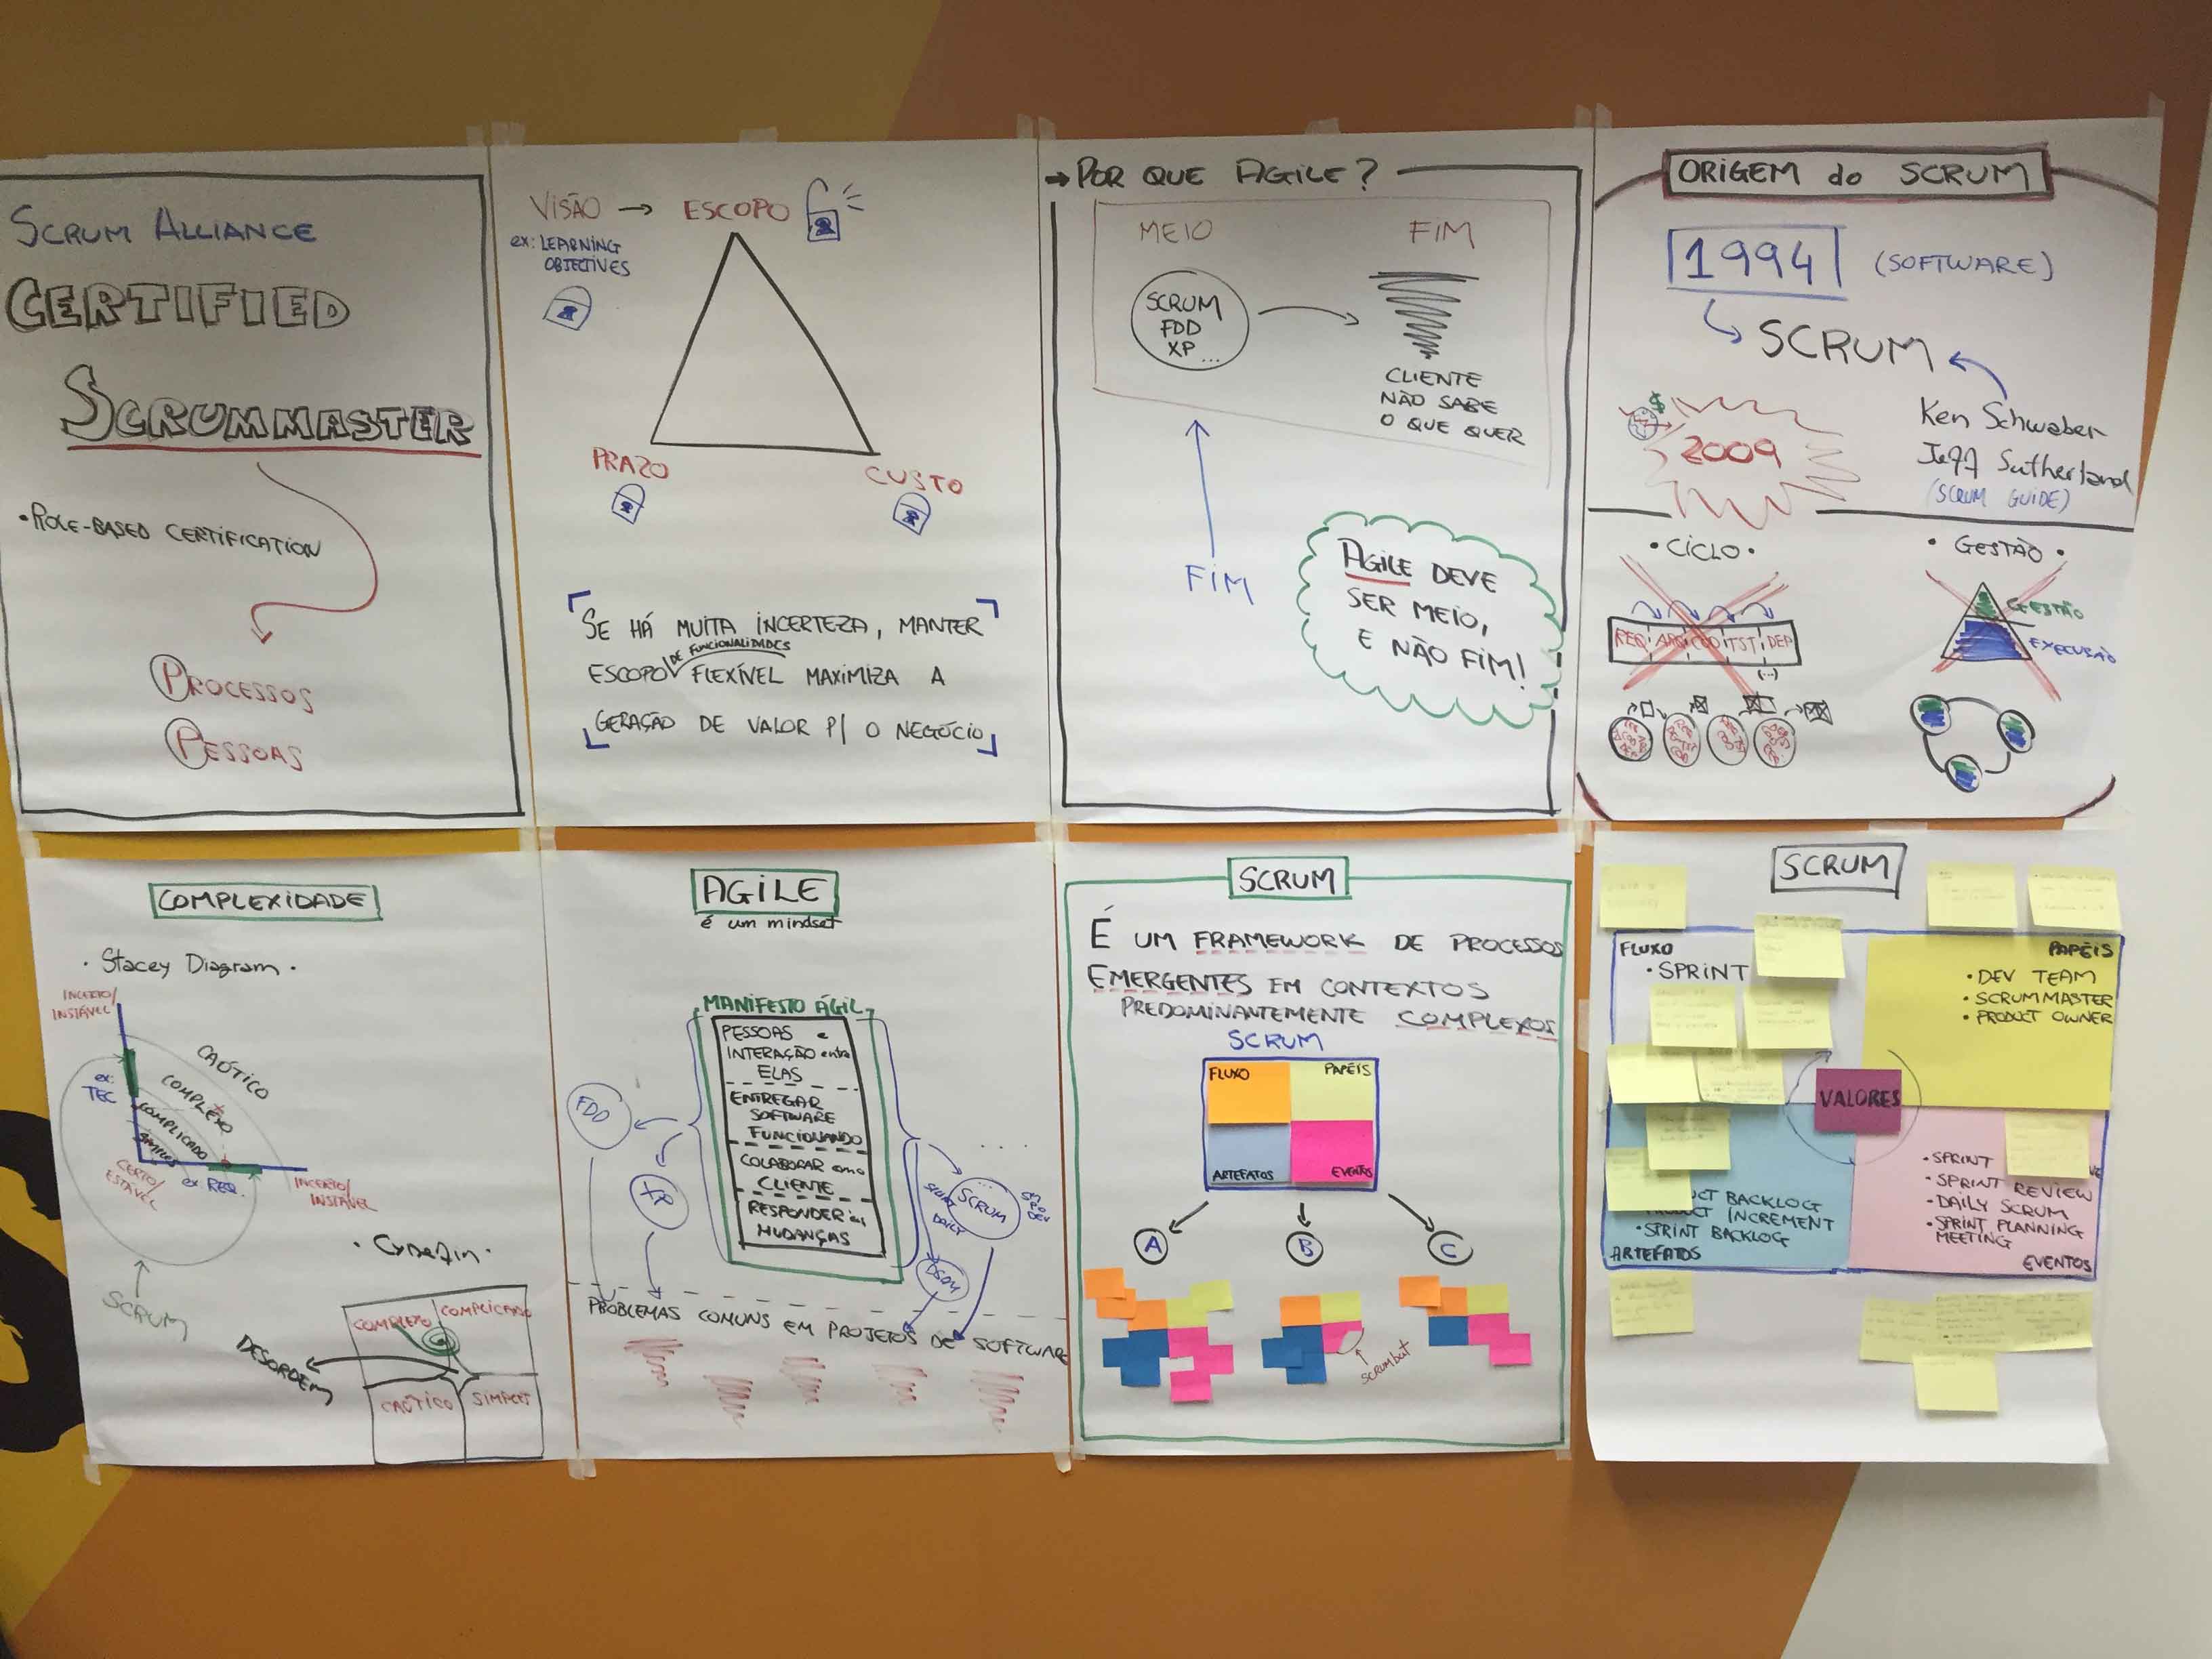 SCRUM ALLIANCE
CERTIFIED
SCRUMMASTER
• ROLE-BASED CERTIFICATION
PROCESSOS
PESSOAS
VISÃO → ESCOPO
ex: LEARNING
OBJECTIVES
PRAZO
CUSTO
SE HÁ MUITA INCERTEZA, MANTER
DE FUNCIONALIDADES
ESCOPO FLEXÍVEL MAXIMIZA A
GERAÇÃO DE VALOR P/ O NEGÓCIO
→ POR QUE AGILE?
MEIO
FIM
SCRUM
FDD
XP...
CLIENTE
NÃO SABE
O QUE QUER
FIM
AGILE DEVE
SER MEIO,
E NÃO FIM!
ORIGEM do SCRUM
1994 (SOFTWARE)
SCRUM
$
2009
Ken Schwaber
Jeff Sutherland
(SCRUM GUIDE)
• CICLO •
REQ ARQ COD TST DEP
(...)
• GESTÃO •
GESTÃO
EXECUSÃO
COMPLEXIDADE
• Stacey Diagram •
INCERTO/
INSTÁVEL
CAÓTICO
COMPLEXO
COMPLICADO
SIMPLES
ex:
TEC
CERTO/
ESTÁVEL
ex: REQ.
INCERTO/
INSTÁVEL
SCRUM
• Cynefin •
COMPLEXO
COMPLICADO
DESORDEM
CAÓTICO
SIMPLES
AGILE
é um mindset
MANIFESTO ÁGIL
PESSOAS e
INTERAÇÃO entre
ELAS
ENTREGAR
SOFTWARE
FUNCIONANDO
COLABORAR com o
CLIENTE
RESPONDER às
MUDANÇAS
FDD
XP
SCRUM
DAILY
SM
PO
DEV
DSDM
PROBLEMAS COMUNS EM PROJETOS DE SOFTWARE
SCRUM
É UM FRAMEWORK DE PROCESSOS
EMERGENTES EM CONTEXTOS
PREDOMINANTEMENTE COMPLEXOS
SCRUM
FLUXO
PAPÉIS
ARTEFATOS
EVENTOS
A
B
C
scrumbut
SCRUM
FLUXO
• SPRINT
PAPÉIS
• DEV TEAM
• SCRUMMASTER
• PRODUCT OWNER
VALORES
UCT BACKLOG
UCT INCREMENT
• SPRINT BACKLOG
ARTEFATOS
• SPRINT
• SPRINT REVIEW
• DAILY SCRUM
• SPRINT PLANNING
MEETING
EVENTOS